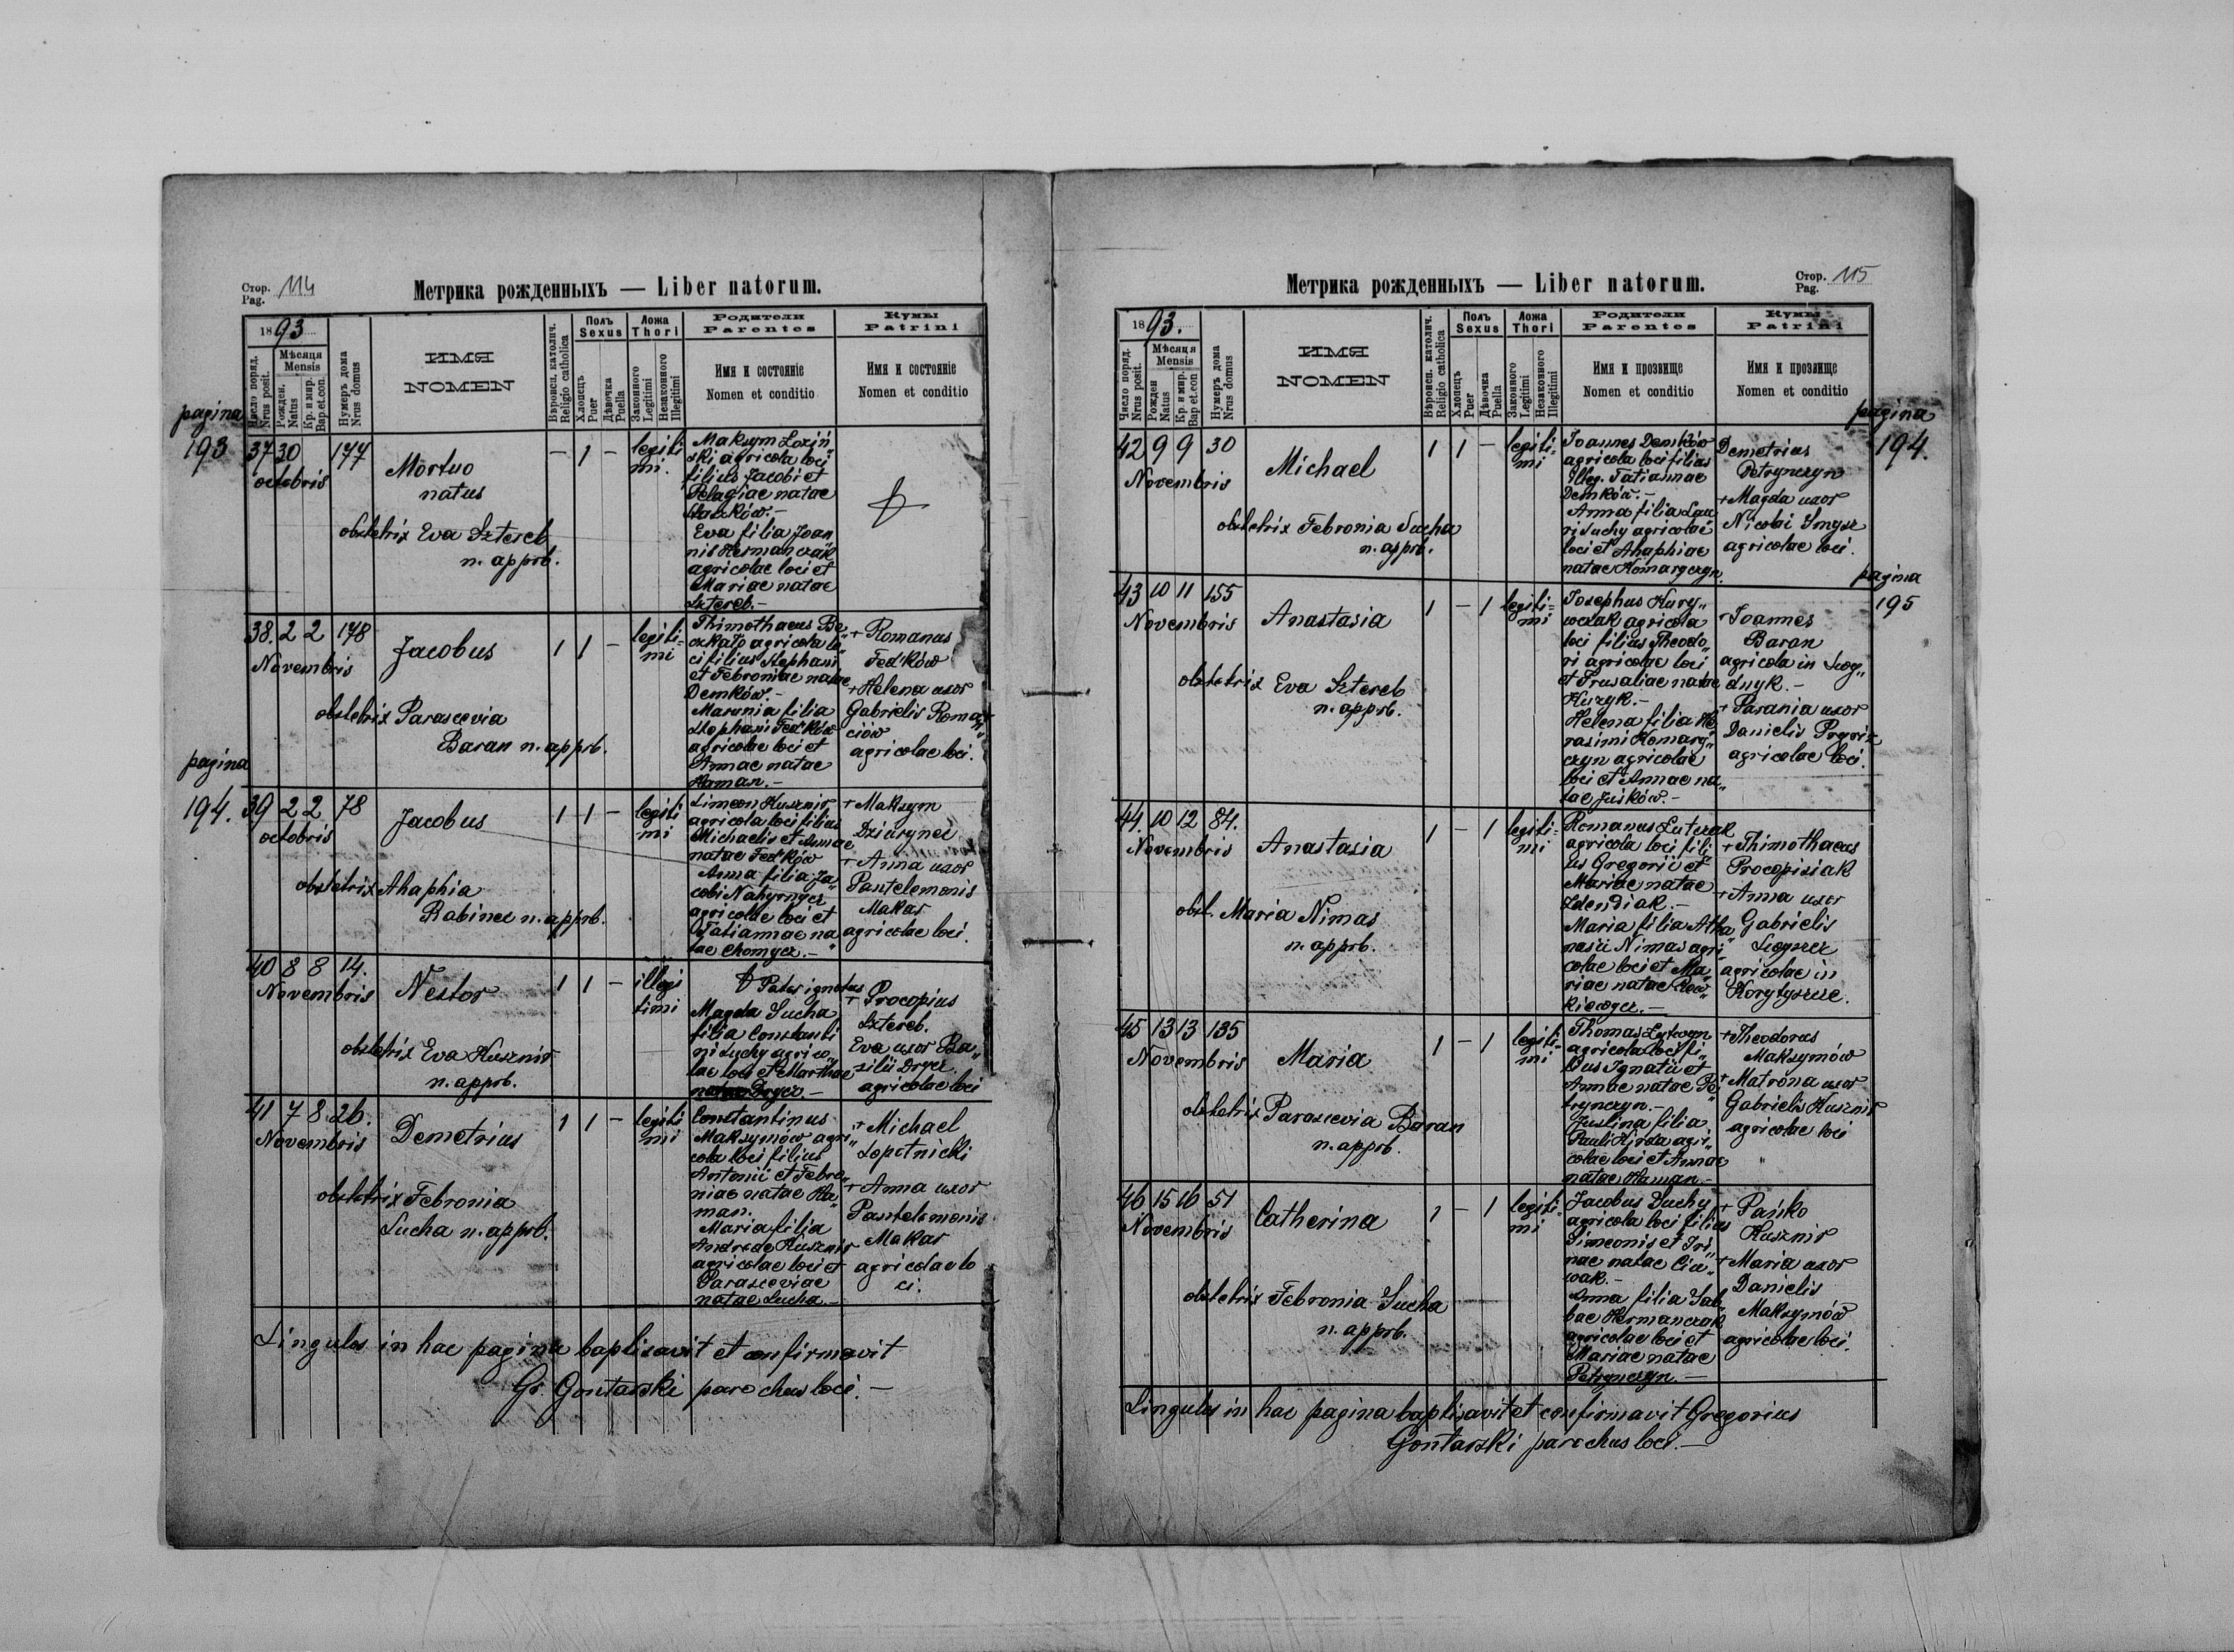 Стор. Pag. 114
Метрика рожденныхъ — Liber natorum.
1893
Число поряд. Nrus posit.
Мѣсяця Mensis
Рожден. Natus
Кр. и мир. Bap. et. con.
Нумеръ дома Nrus domus
ИМЯ
NOMEN
Вѣроисп. католич. Religio catholica
Полъ Sexus
Хлопецъ Puer
Дѣвочка Puella
Ложа Thori
Законного Legitimi
Незаконного Illegitimi
Родители
Parentes
Имя и состоянiе
Nomen et conditio
Кумы
Patrini
Имя и состоянiе
Nomen et conditio
pagina
193
37 30 177
octobris
Mortuo
natus
obstetrix Eva Sztereb
n. apprb.
— 1 — legiti
mi.
Maksym Loziń„
ski agricola loci
filius Jacobi et
Pelagiae natae
Eva filia Joan„
nis Hermanczak
agricolae loci et
Mariae natae
Sztereb.—
38. 2 2 178
Novembris
Jacobus
obstetrix Parascevia
Baran n. apprb.
1 1 — legiti-
mi
Thimothaeus Be„
agricola lo„
ci filius Stephani
et Febroniae natae
Demków.—
Marunia filia
Stephani Fed'ków
agricolae loci et
Annae natae
Haman.—
+ Romanus
Fed'ków
+ Helena uxor
Gabrielis Roma„
ciów
agricolae loci.
pagina
194.
39 2 2 78
octobris
Jacobus
obstetrix Ahaphia
Rabinec n. apprb.
1 1 — legiti
mi
Simeon Kusznir
agricola loci filius
Michaelis et Annae
natae Fed'ków
Anna filia Ja„
cobi Nahyrnycz
agricolae loci et
Tatiannae na„
tae Chomycz.—
+ Maksym
+ Anna uxor
Pantelemonis
Makar
agricolae loci.
40 8 8 14.
Novembris
Nestor
obstetrix Eva Kusznir
n. apprb.
1 1 — illegi
timi
Pater ignotus
Magda Sucha
filia Constanti
ni Suchy agrico„
lae loci et Marthae
natae Drycz.—
+ Procopius
Sztereb.
Eva uxor Ba„
silii Drycz
agricolae loci
41 7 8 26.
Novembris
Demetrius
obstetrix Febronia
Sucha n. apprb.
1 1 — legiti
mi
Constantinus
Maksymów agri„
cola loci filius
Antonii et Febro„
niae natae Ha„
man.
Maria filia
Andreae Kusznir
agricolae loci et
Parasceviae
natae Sucha.—
+ Michael
Lopotnicki
+ Anna uxor
Pantelemonis
Makar
agricolae lo
ci.
Singulos in hac pagina baptisavit et confirmavit
Gr. Gontarski parochus loci.—
Метрика рожденныхъ — Liber natorum.
Стор. Pag. 115
1893.
Число поряд. Nrus posit.
Мѣсяця Mensis
Рожден Natus
Кр. и мир. Bap et. con
Нумеръ дома Nrus domus
ИМЯ
NOMEN
Вѣроисп. католич. Religio catholica
Полъ Sexus
Хлопецъ Puer
Дѣвочка Puella
Ложа Thori
Законного Legitimi
Незаконного Illegitimi
Родители
Parentes
Имя и прозвище
Nomen et conditio
Кумы
Patrini
Имя и прозвище
Nomen et conditio
pagina
194.
42 9 9 30
Novembris
Michael
obstetrix Febronia Sucha
n. apprb.
1 1 — legiti-
mi
Joannes Demków
agricola loci filius
illeg. Tatiannae
Demków.—
Anna filia Lau„
ri Suchy agricolae
loci et Ahaphiae
natae Komaryczyn
Demetrius
Petrynczyn
+ Magda uxor
Nicolai Smysz
agricolae loci.
pagina
195
43 10 11 155
Novembris
Anastasia
obstetrix Eva Sztereb
n. apprb.
1 — 1 legiti-
mi
Josephus Hury„
wczak agricola
loci filius Theodo„
ri agricolae loci
natae
Kuzyk.—
Helena filia He„
rasimi Komary„
czyn agricolae
loci et Annae na„
tae Juśków.—
+ Joannes
Baran
agricola in Lwy„
dnyk.—
+ Parania uxor
Danielis
agricolae loci.
44. 10 12 84.
Novembris
Anastasia
obst. Maria Nimas
n. apprb.
1 — 1 legiti-
mi
Romanus Lutczak
agricola loci fili„
us Gregorii et
Mariae natae
Maria filia Atha„
nasii Nimas agri„
colae loci et Ma„
riae natae
+ Thimothaeus
Procopisiak
+ Anna uxor
Gabrielis
agricolae in
Korytyszcze.
45 13 13 135
Novembris
Maria
obstetrix Parascevia Baran
n. apprb.
1 — 1 legiti-
mi
Thomas Lytwyn
agricola loci fi„
lius Ignatii et
Annae natae Pe„
trynczyn.—
Justina filia
Pauli Hirda agri„
colae loci et Annae
natae Haman.—
+ Theodorus
Maksymów
+ Matrona uxor
Gabrielis Kusznir
agricolae loci
46 15 16 51
Novembris
Catherina
obstetrix Febronia Sucha
n. apprb.
1 — 1 legiti-
mi
Jacobus Suchy
agricola loci filius
Simeonis et Iri„
nae natae Ciu„
wak.—
Anna filia Sab„
bae Hermanczak
agricolae loci et
Mariae natae
Petrynczyn.—
+ Pańko
Kusznir
+ Maria uxor
Danielis
Maksymów
agricolae loci.
Singulos in hac pagina baptisavit et confirmavit Gregorius
Gontarski parochus loci.—